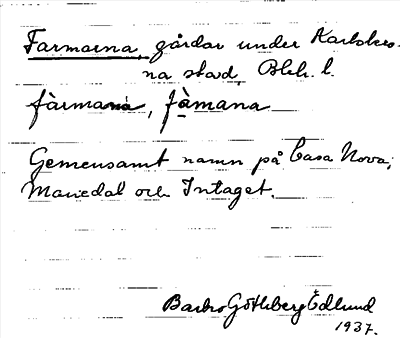 Farmarna, gårdar under Karlskro-
na stad, Blek. l.
fàrmaṇa, fà̱mana
Gemensamt namn på Casa Nova,
Mariedal och Intaget.
Barbro Götlsberg Edlund
1937.